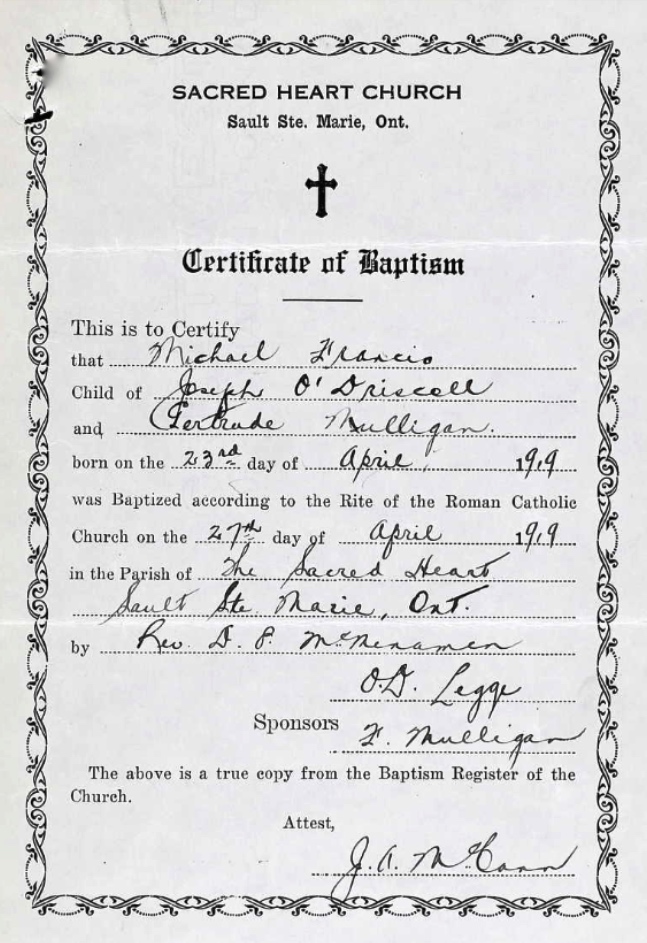 SACRED HEART CHURCH
Sault Ste. Marie, Ont.
Certificate of Baptism
This is to Certify
that Michael Francis
Child of Joseph O'Driscoll
and Gertrude Mulligan.
born on the 23rd day of April, 1919
was Baptized according to the Rite of the Roman Catholic
Church on the 27th day of April 1919
in the Parish of The Sacred Heart
Sault Ste. Marie, Ont.
by Rev. D. P. McMenamen
O.D. Legge
Sponsors F. Mulligan
The above is a true copy from the Baptism Register of the
Church.
Attest,
J. A. McCann